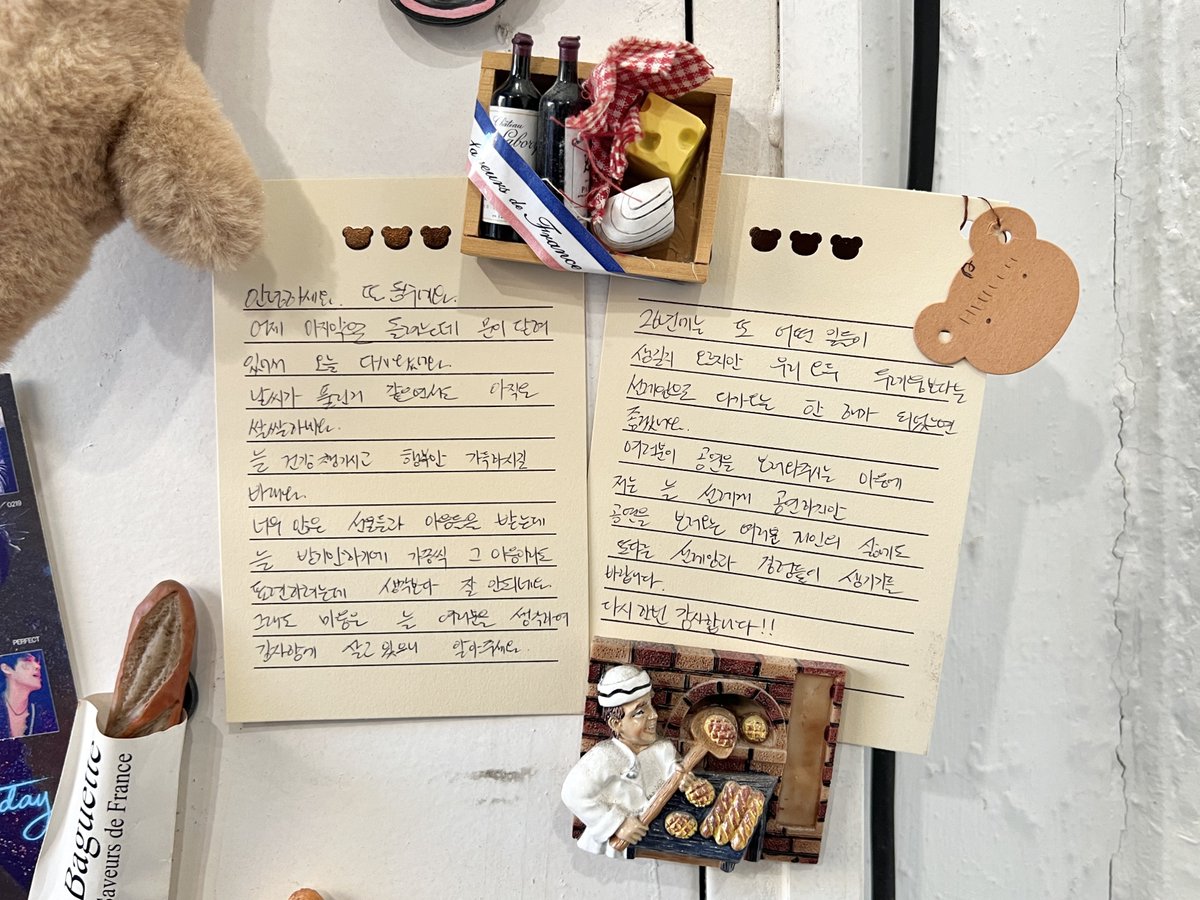 Château
Labory
Saveurs de France
안녕하세요. 또 왔네요.
어제 마지막으로 들렸는데 문이 닫혀
있어서 오늘 다시 왔네요.
날씨가 풀린거 같은면서도 아직은
쌀쌀하네요.
늘 건강 챙기시고 행복만 가득하시길
바래요.
너무 많은 선물들과 마음들을 받는데
늘 받기만하기에 가끔씩 그 마음에도
표현하려는데 생각보다 잘 안되네요.
그래도 마음은 늘 여러분을 생각하며
감사함에 살고있으니 알아주세요.
26년에는 또 어떤 일들이
생길지 모르지만 우리 모두 두려움보다는
설레임으로 다가오는 한 해가 되었으면
좋겠네요.
여러분이 공연을 보러와주시는 마음에
저는 늘 설레게 공연하지만
공연을 보러오는 여러분 자신의 삶에도
또다른 설레임과 감정들이 생기기를
바랍니다.
다시 한번 감사합니다!!
0219
PERFECT
day
Baguette
Saveurs de France